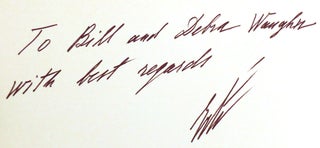 To Bill and Debra Vaughn
with best regards